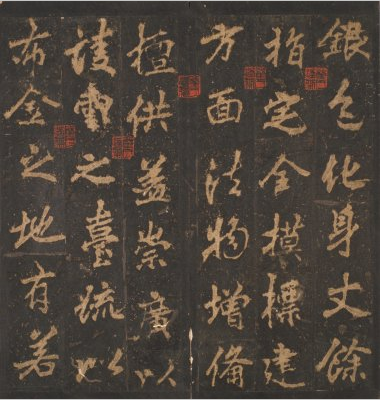 銀色化身丈餘
指定全摸標建
方面法物增備
檀供益崇廣以
凌雲之臺疏以
布金之地有若